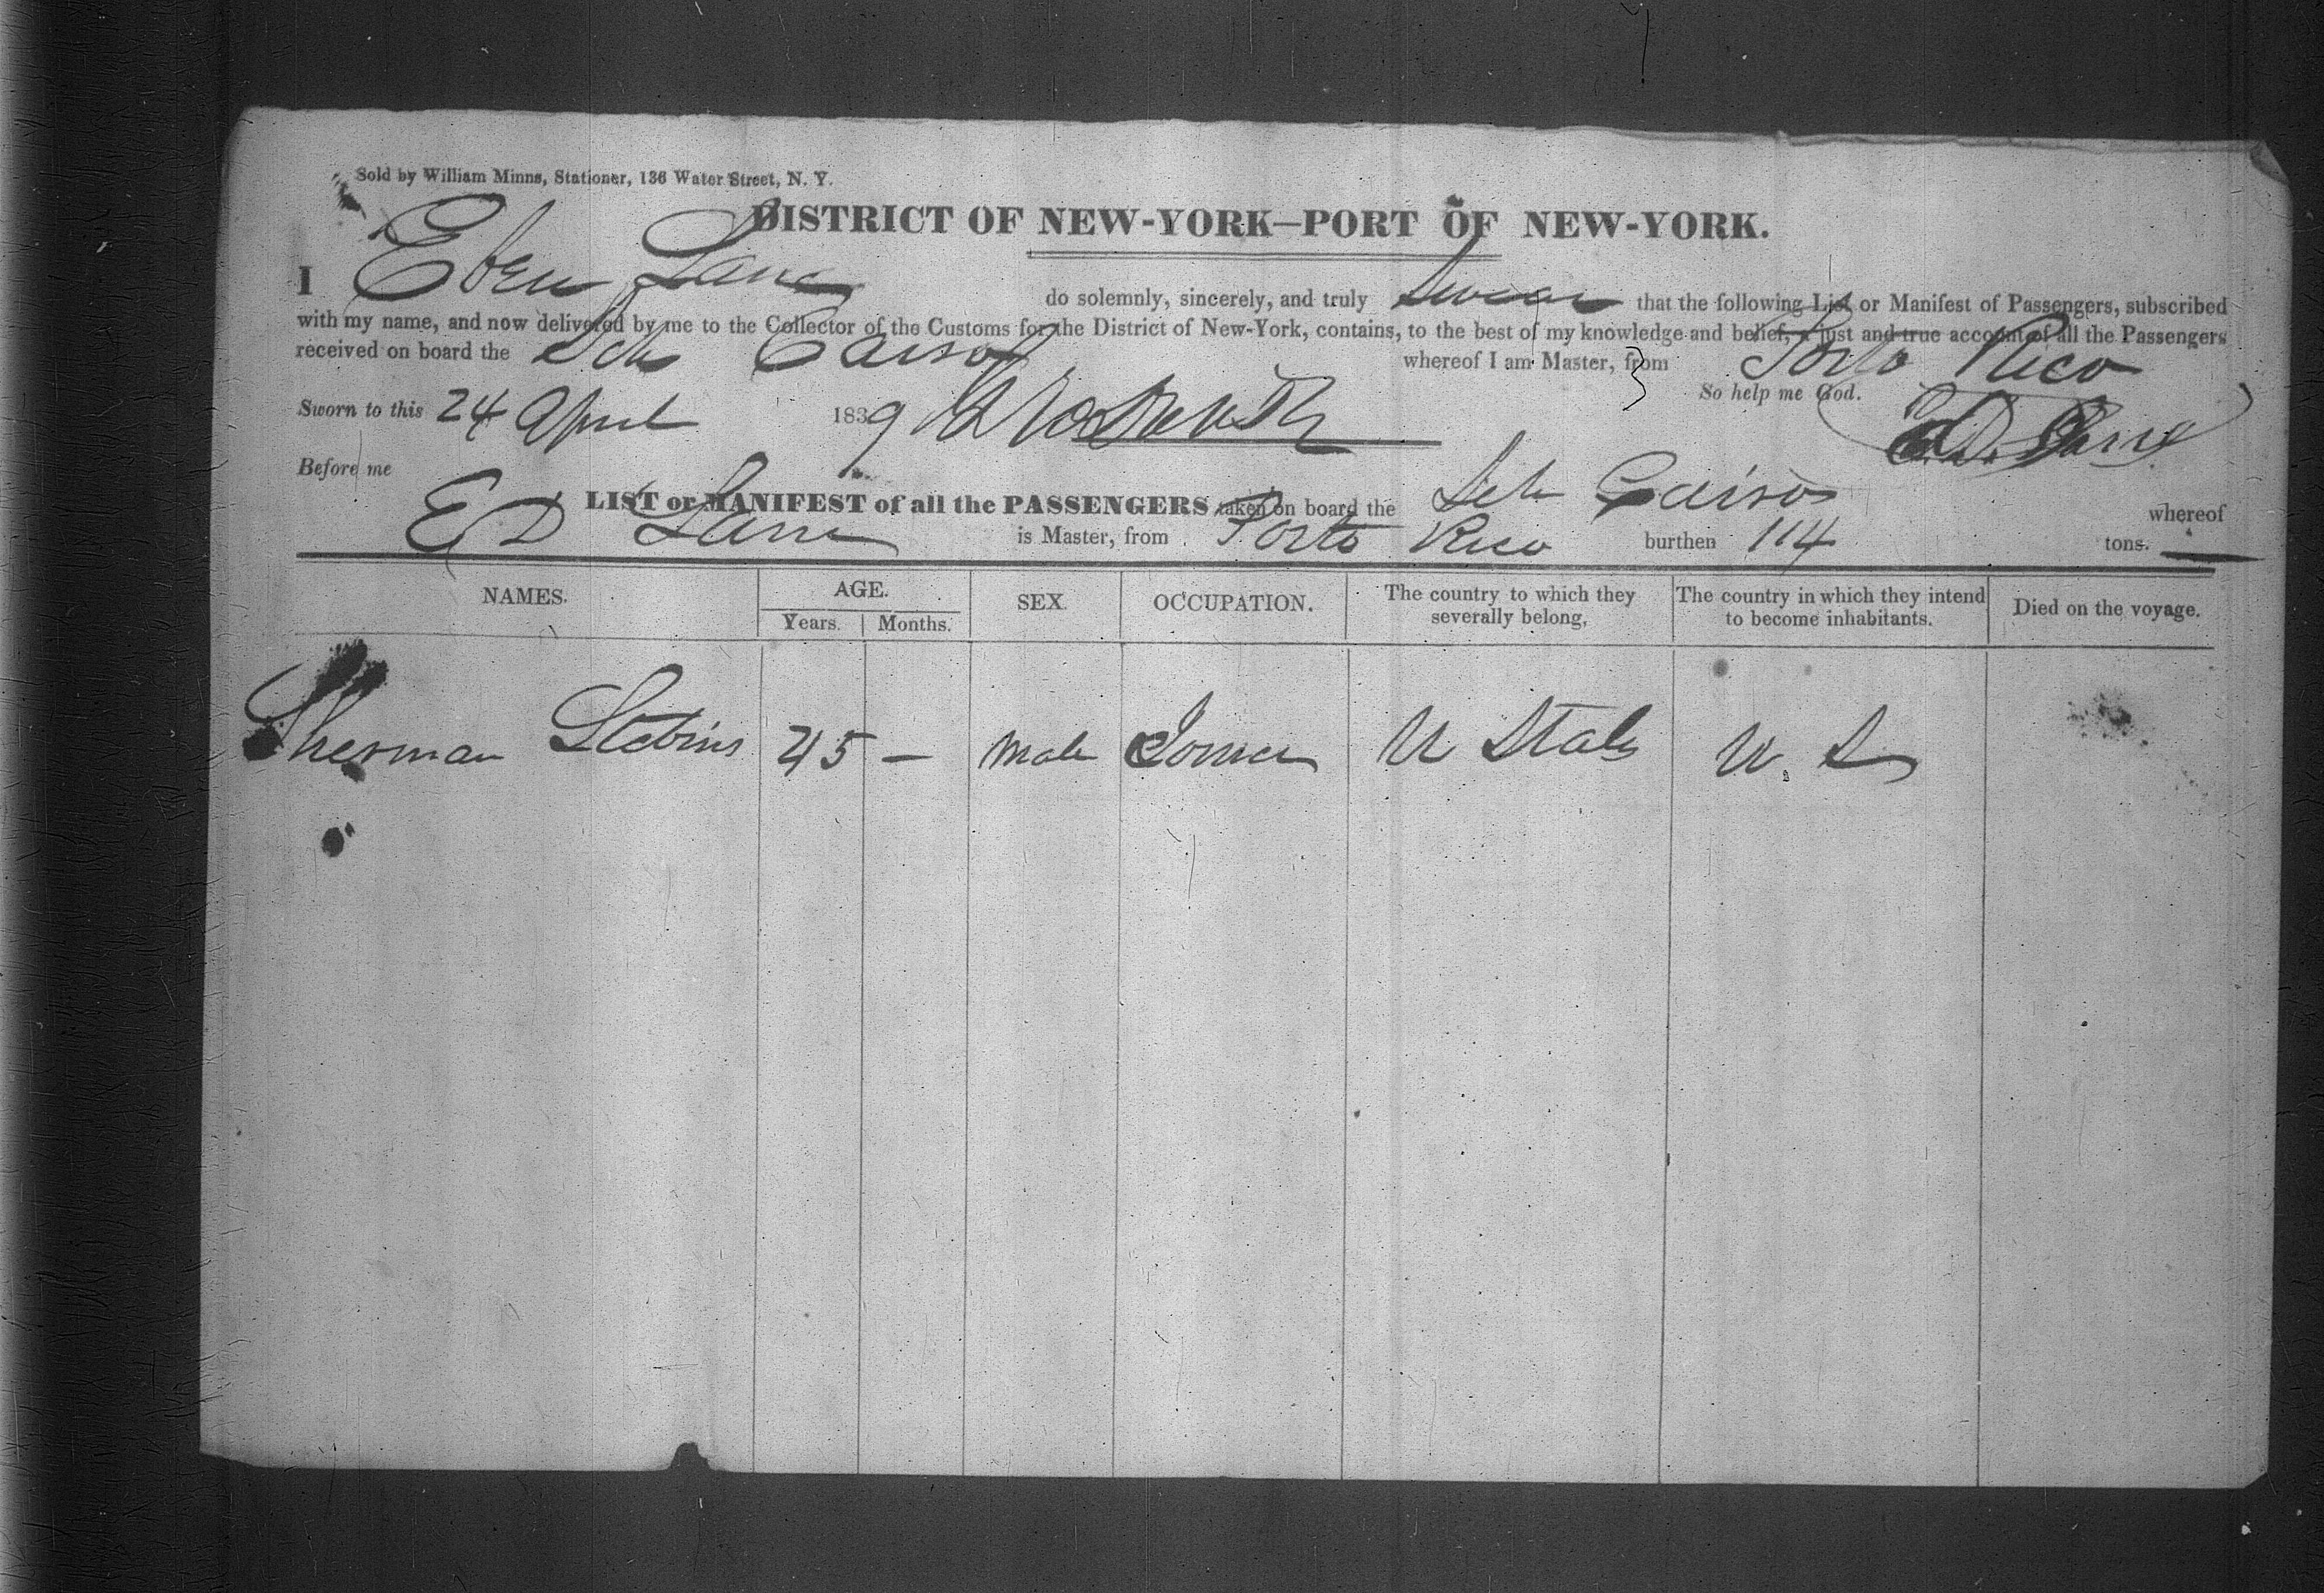 Sold by William Minns, Stationer, 136 Water Street, N. Y.
DISTRICT OF NEW-YORK—PORT OF NEW-YORK.
I Eben Lane do solemnly, sincerely, and truly swear that the following List or Manifest of Passengers, subscribed
with my name, and now delivered by me to the Collector of the Customs for the District of New-York, contains, to the best of my knowledge and belief, a just and true account of all the Passengers
received on board the Sch whereof I am Master, from Porto Rico
So help me God.
Sworn to this 24 April 1839
E. D. Lane
Before me
LIST or MANIFEST of all the PASSENGERS taken on board the Sch whereof
E D Lane is Master, from Porto Rico burthen 114 tons.
NAMES. AGE. SEX. OCCUPATION. The country to which they severally belong, The country in which they intend to become inhabitants. Died on the voyage.
Years. Months.
Sherman Stebins 45 — Male U States U. S